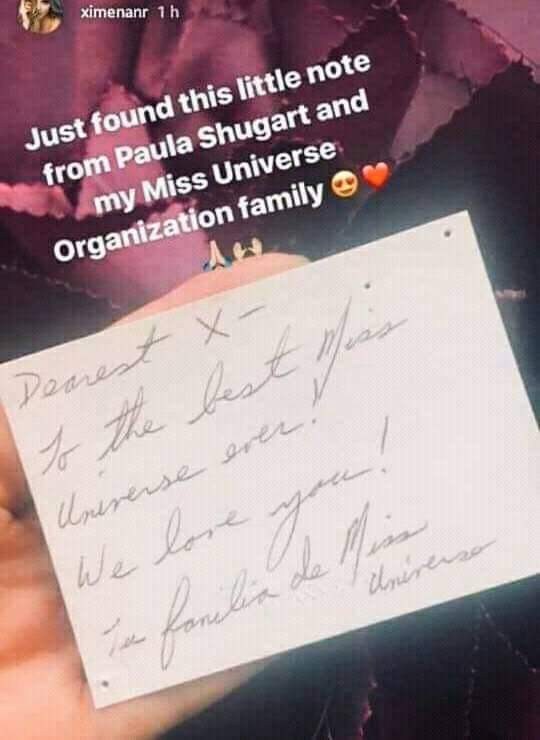 ximenanr 1 h
Just found this little note
from Paula Shugart and
my Miss Universe
Organization family 😍❤️
🙏🏼🙌🏼
Dearest X-
To the best Miss
Universe ever!
We love you!
Tu familia de Miss
Universe